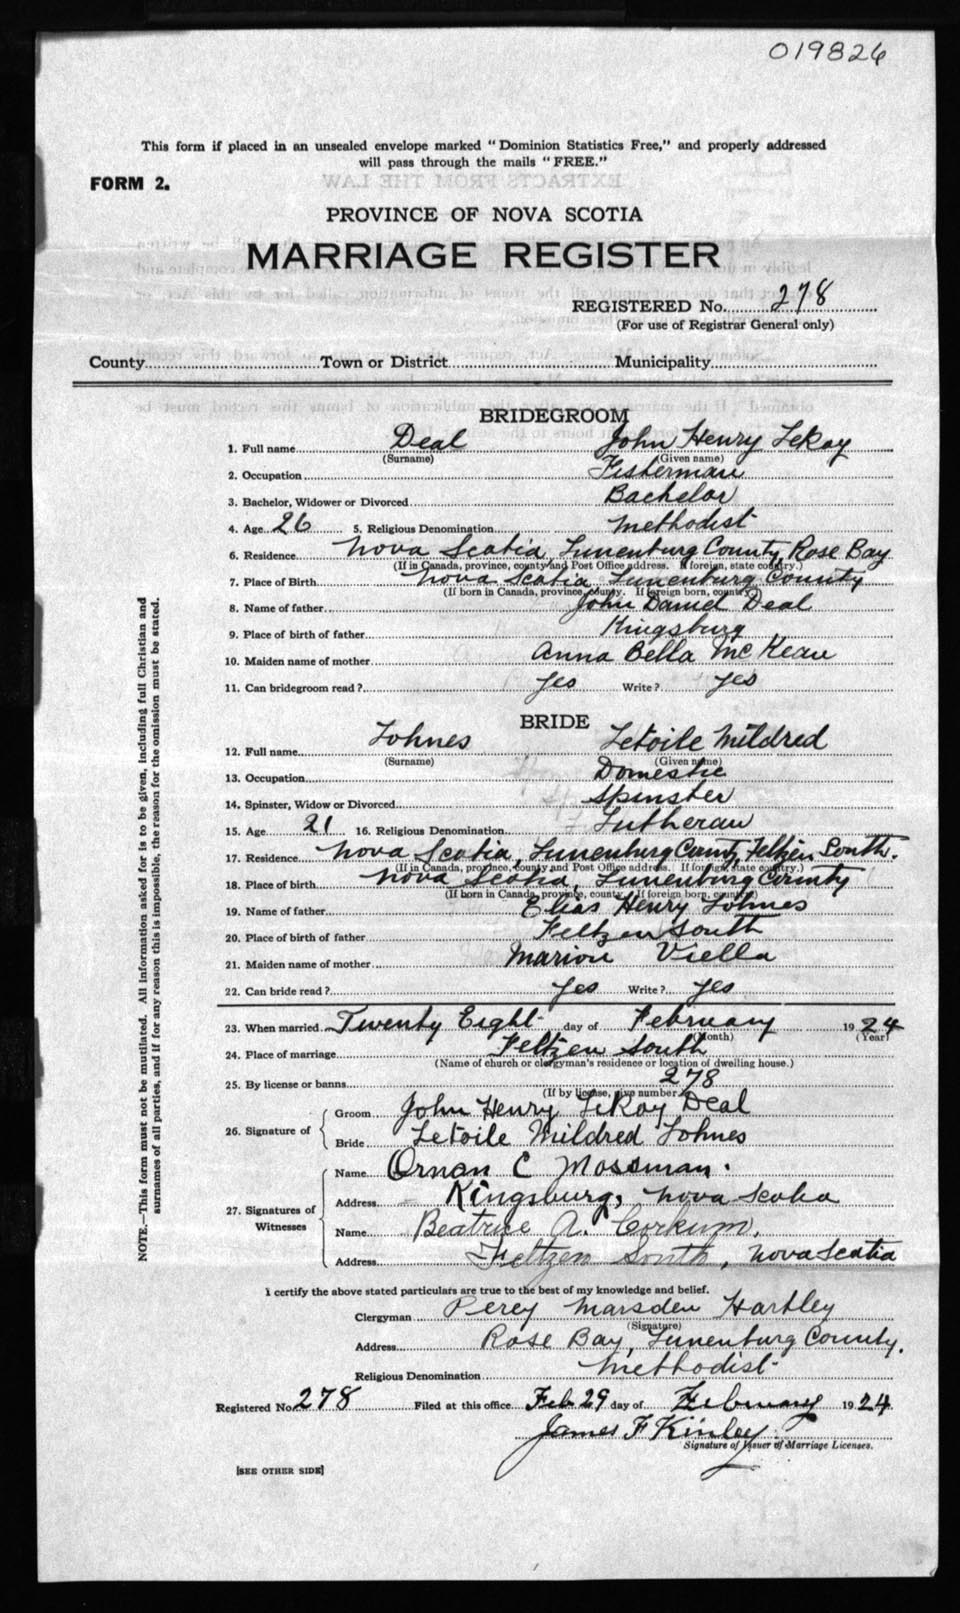 019826
This form if placed in an unsealed envelope marked "Dominion Statistics Free," and properly addressed
will pass through the mails "FREE."
FORM 2.
PROVINCE OF NOVA SCOTIA
MARRIAGE REGISTER
REGISTERED No. 278
(For use of Registrar General only)
County Town or District Municipality
BRIDEGROOM
1. Full name Deal John Henry LeRoy
(Surname) (Given name)
2. Occupation Fisherman
3. Bachelor, Widower or Divorced Bachelor
4. Age 26 5. Religious Denomination Methodist
6. Residence Nova Scotia, Lunenburg County, Rose Bay
(If in Canada, province, county and Post Office address. If foreign, state country.)
7. Place of Birth Nova Scotia Lunenburg County
(If born in Canada, province, county. If foreign born, country.)
8. Name of father John Daniel Deal
9. Place of birth of father Kingsburg
10. Maiden name of mother Anna Bella McKean
11. Can bridegroom read? Yes Write? Yes
BRIDE
12. Full name Lohnes Letoile Mildred
(Surname) (Given name)
13. Occupation Domestic
14. Spinster, Widow or Divorced Spinster
15. Age 21 16. Religious Denomination Lutheran
17. Residence Nova Scotia, Lunenburg County, Feltzen South.
(If in Canada, province, county and Post Office address. If foreign, state country.)
18. Place of birth Nova Scotia, Lunenburg County
(If born in Canada, province, county. If foreign born, country.)
19. Name of father Elias Henry Lohnes
20. Place of birth of father Feltzen South
21. Maiden name of mother Marion Viella
22. Can bride read? Yes Write? Yes
23. When married Twenty Eight day of February 1924
(Month) (Year)
24. Place of marriage Feltzen South
(Name of church or clergyman's residence or location of dwelling house.)
25. By license or banns 278
(If by license, give number.)
26. Signature of Groom John Henry LeRoy Deal
Bride Letoile Mildred Lohnes
27. Signatures of Witnesses Name Ornan C Mossman.
Address Kingsburg, Nova Scotia
Name Beatrice A. Corkum,
Address Feltzen South, Nova Scotia
I certify the above stated particulars are true to the best of my knowledge and belief.
Clergyman Percy Marsden Hartley
(Signature)
Address Rose Bay, Lunenburg County.
Religious Denomination Methodist
Registered No. 278 Filed at this office Feb 29 day of February 1924
James F Kinley
Signature of Issuer of Marriage Licenses.
[SEE OTHER SIDE]
NOTE.—This form must not be mutilated. All information asked for is to be given, including full Christian and
surnames of all parties, and if for any reason this is impossible, the reason for the omission must be stated.